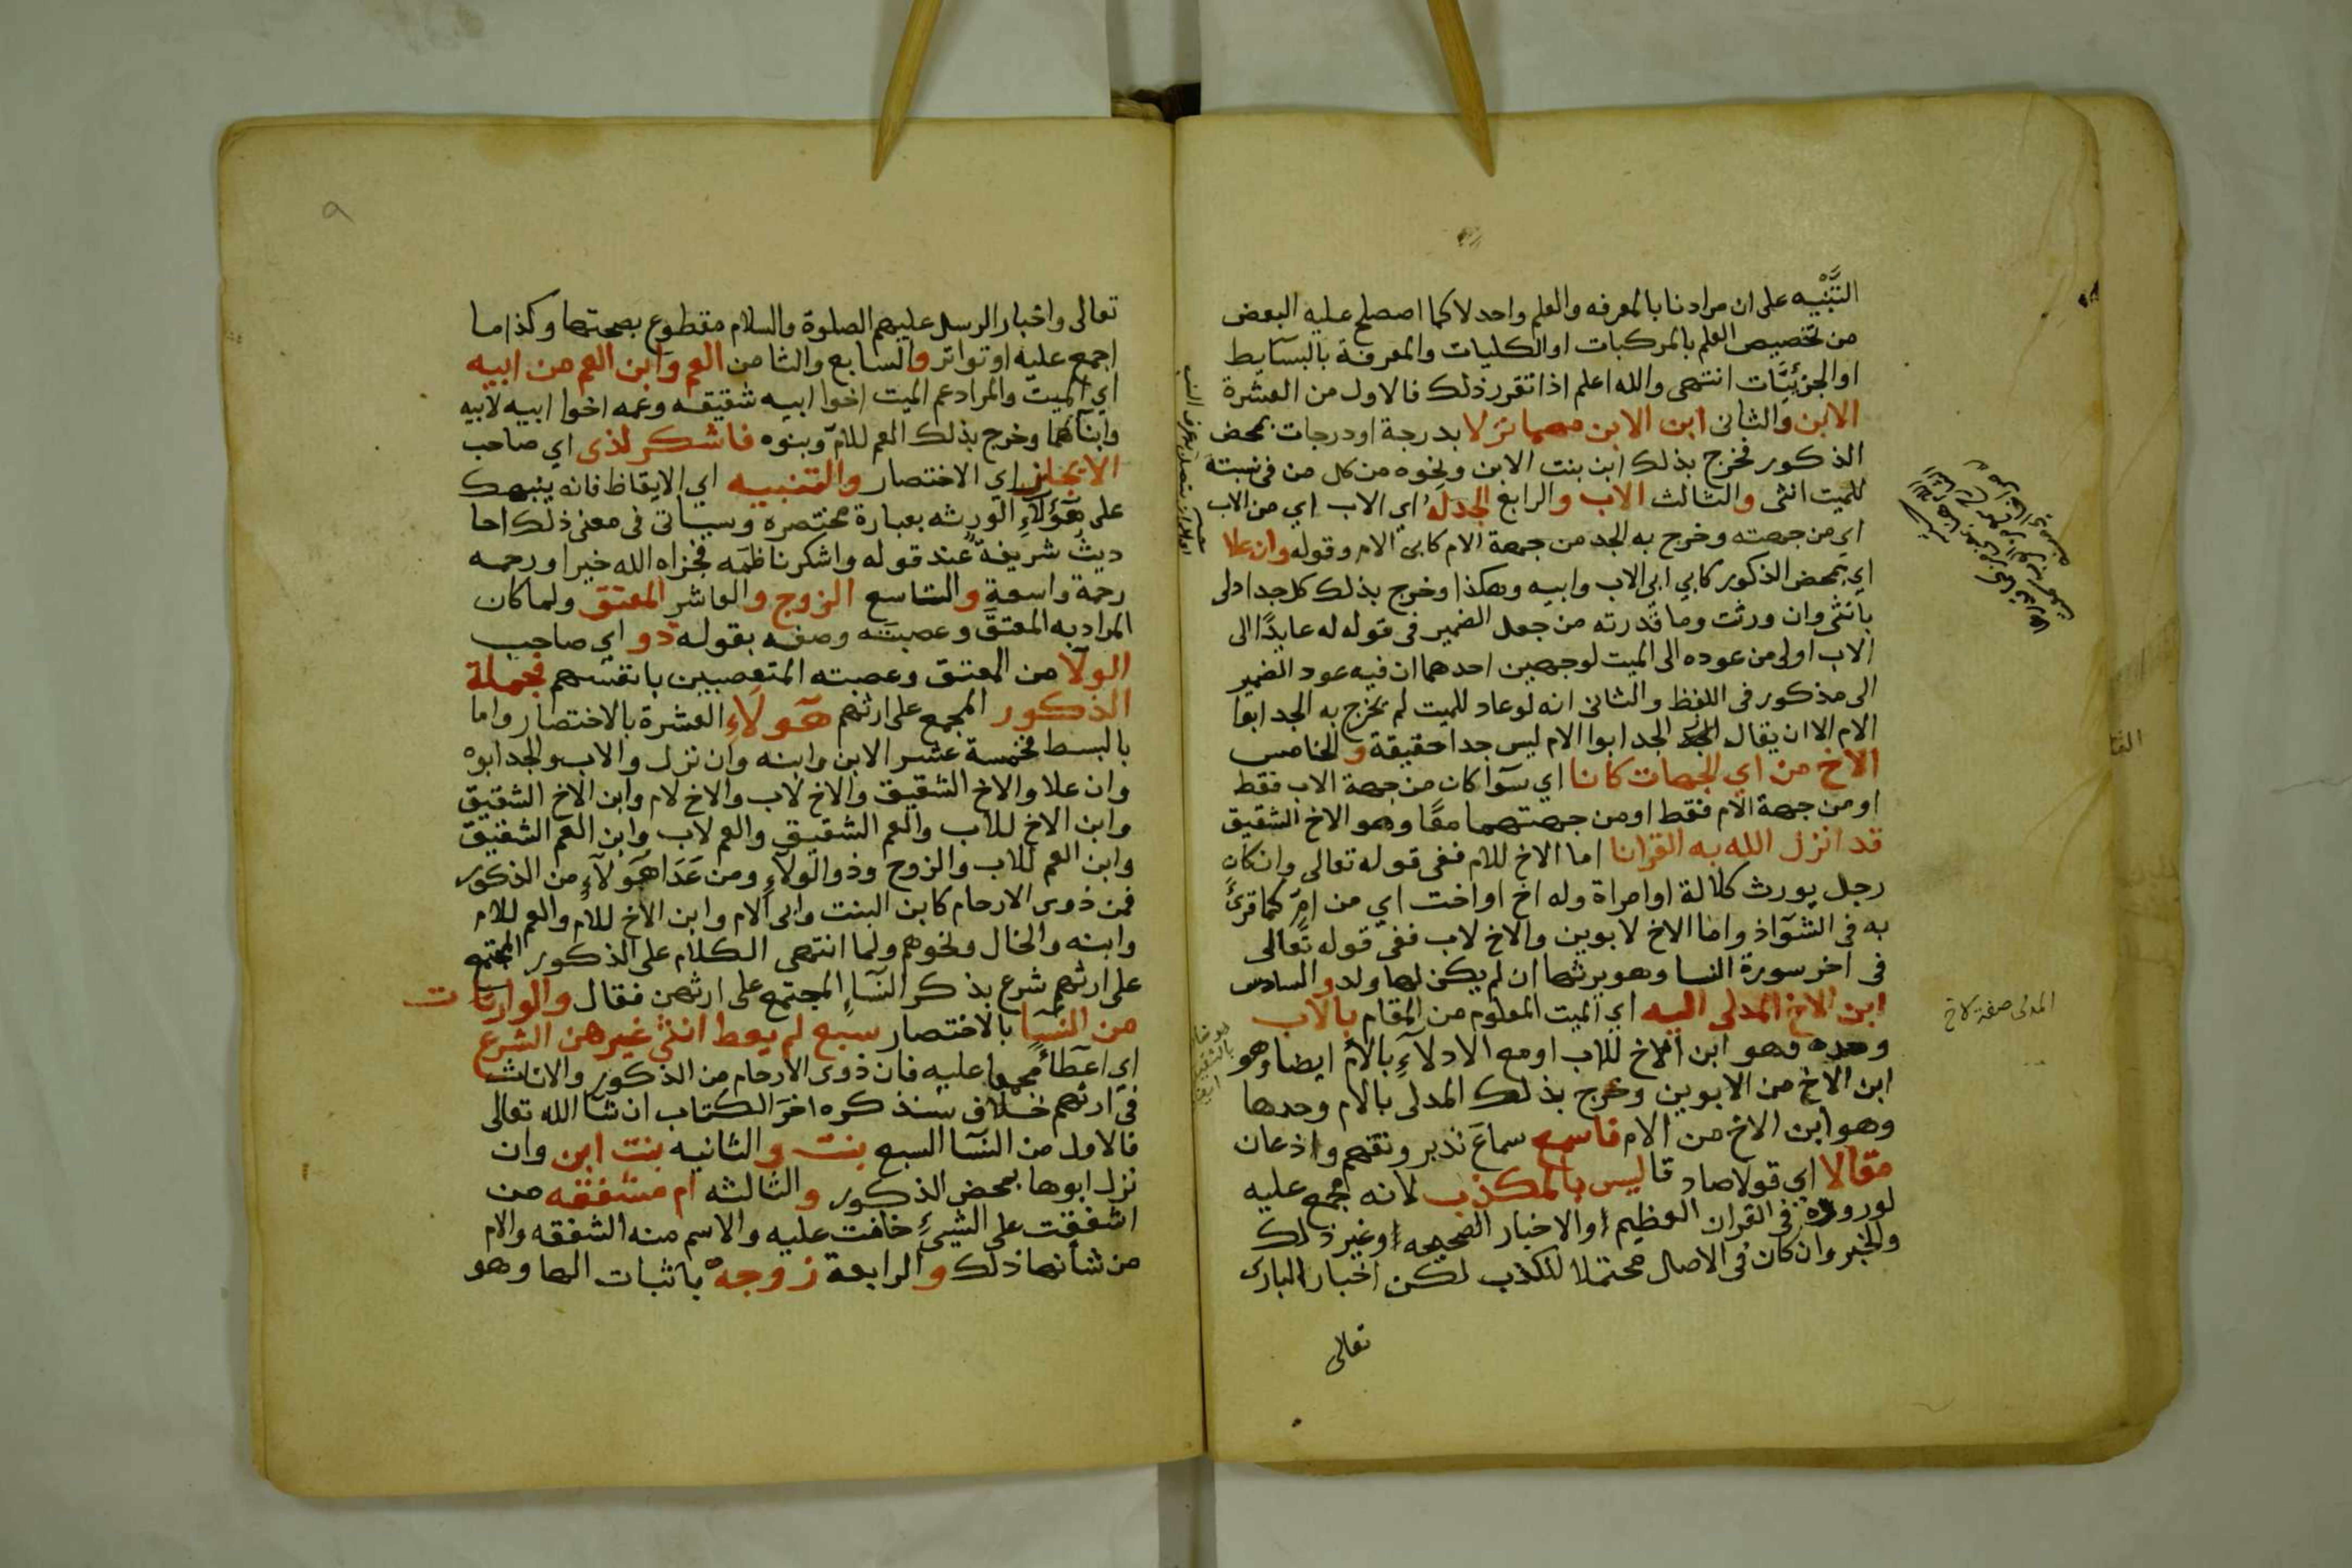 التنبيه على ان مرادنا بالمعرفه والعلم واحد لا كما اصصلح عليه البعض
من تخصيص العلم بالمركبات او الكليات والمعرفة بالبسآيط
او الجزئيَّات انتهى والله اعلم اذا تقرر ذلك فالاول من العشرة
الابن والثانى ابن الابن مهما نزلا بدرجة او درجات بمحض
الذكور فخرج بذلك ابن بنت الابن ونحوه من كل من فى نسبته
للميت انثى والثالث الاب والرابع الجد له اي الاب اي من الاب
اي من جهته وخرج به الجد من جهة الام كابى الام وقوله وان علا
اي بمحض الذكور كابي ابى الاب وابيه وهكذا وخرج بذلك كل جد ادلى
بانثى وان ورثت وما قدرته من جعل الضمير فى قوله له عايدًا الى
الاب اولى من عوده الى الميت لوجهين احدهما ان فيه عود الضمير
الى مذكور فى اللفظ والثانى انه لو عاد للميت لم يخرج به الجد ابوا
الام الا ان يقال الجد ابوا الام ليس جدا حقيقة والخامس
الاخ من اي الجهات كانا اي سوآ كان من جهة الاب فقط
او من جهة الام فقط او من جهتهما معًا وهو الاخ الشقيق
قد انزل الله به القرانا اما الاخ للام ففى قوله تعالى وان كان
رجل يورث كلالة او امراة وله اخ او اخت اي من امٍّ كما قرئ
به فى الشوآذ واما الاخ لابوين والاخ لاب ففى قوله تعالى
فى اخر سورة النسا وهو يرثها ان لم يكن لها ولد والسادس
ابن الاخ المدلى اليه اي الميت المعلوم من المقام بالاب
وحده وهو ابن الاخ للاب او مع الادلآءِ بالام ايضا وهو
ابن الاخ من الابوين وخرج بذلك المدلى بالام وحدها
وهو ابن الاخ من الام فاسمع سماعَ تدبر وتفهم واذعان
مقالا اي قولا صادقا ليس بالمكذب لانه مجمع عليه
لوروده فى القران العظيم او الاخبار الصحيحه او غير ذلك
والخبر وان كان فى الاصل محتملا للكذب لكن اخبار البارى
تعالى
المدلى صفة لاخ
٩
تعالى واخبار الرسل عليهم الصلوة والسلام مقطوع بصحتها وكذا ما
اجمع عليه او تواتر والسابع والثامن العم وابن العم من ابيه
اي الميت والمراد عم الميت اخوا ابيه شقيقه وعمه اخوا ابيه لابيه
وابنآهما وخرج بذلك العم للام وبنوه فاشكر لذى اي صاحب
الايجاز اي الاختصار والتنبيه اي الايقاظ فانه ينبهك
على هؤلآءِ الورثه بعبارة مختصره وسياتى فى معنى ذلك احا
ديث شريفة عند قوله واشكر ناظمه فجزاه الله خيرا ورحمه
رحمة واسعة والتاسع الزوج والعاشر المعتق ولما كان
المراد به المعتق وعصبته وصفه بقوله ذو اي صاحب
الولآ من المعتق وعصبته المتعصبين بانفسهم فجملة
الذكور المجمع على ارثهم هؤلآءِ العشرة بالاختصار واما
بالبسط فخمسة عشر الابن وابنه وان نزل والاب والجد ابوه
وان علا والاخ الشقيق والاخ لاب والاخ لام وابن الاخ الشقيق
وابن الاخ للاب والعم الشقيق والعم لاب وابن العم الشقيق
وابن العم للاب والزوج وذو الولآءِ ومن عَدَا هَؤلآءِ من الذكور
فمن ذوى الارحام كابن البنت وابى الام وابن الاخ للام والعم للام
وابنه والخال ونحوهم ولما انتهى الكلام على الذكور المجتمع
على ارثهم شرع بذكر النسآءِ المجتمع على ارثهن فقال والوارثات
من النسآ بالاختصار سبع لم يعط انثى غيرهن الشرع
اي اعطآءً مجمعا عليه فان ذوى الارحام من الذكور والاناث
فى ارثهم خلاف سنذكره اخرَ الكتاب ان شآ الله تعالى
فالاول من النسآ السبع بنت والثانيه بنت ابن وان
نزل ابوها بمحض الذكور والثالثه ام مشفقه من
اشفقت على الشيءِ خافت عليه والاسم منه الشفقه والام
من شأنها ذلك والرابعة زوجه باثبات الها وهو